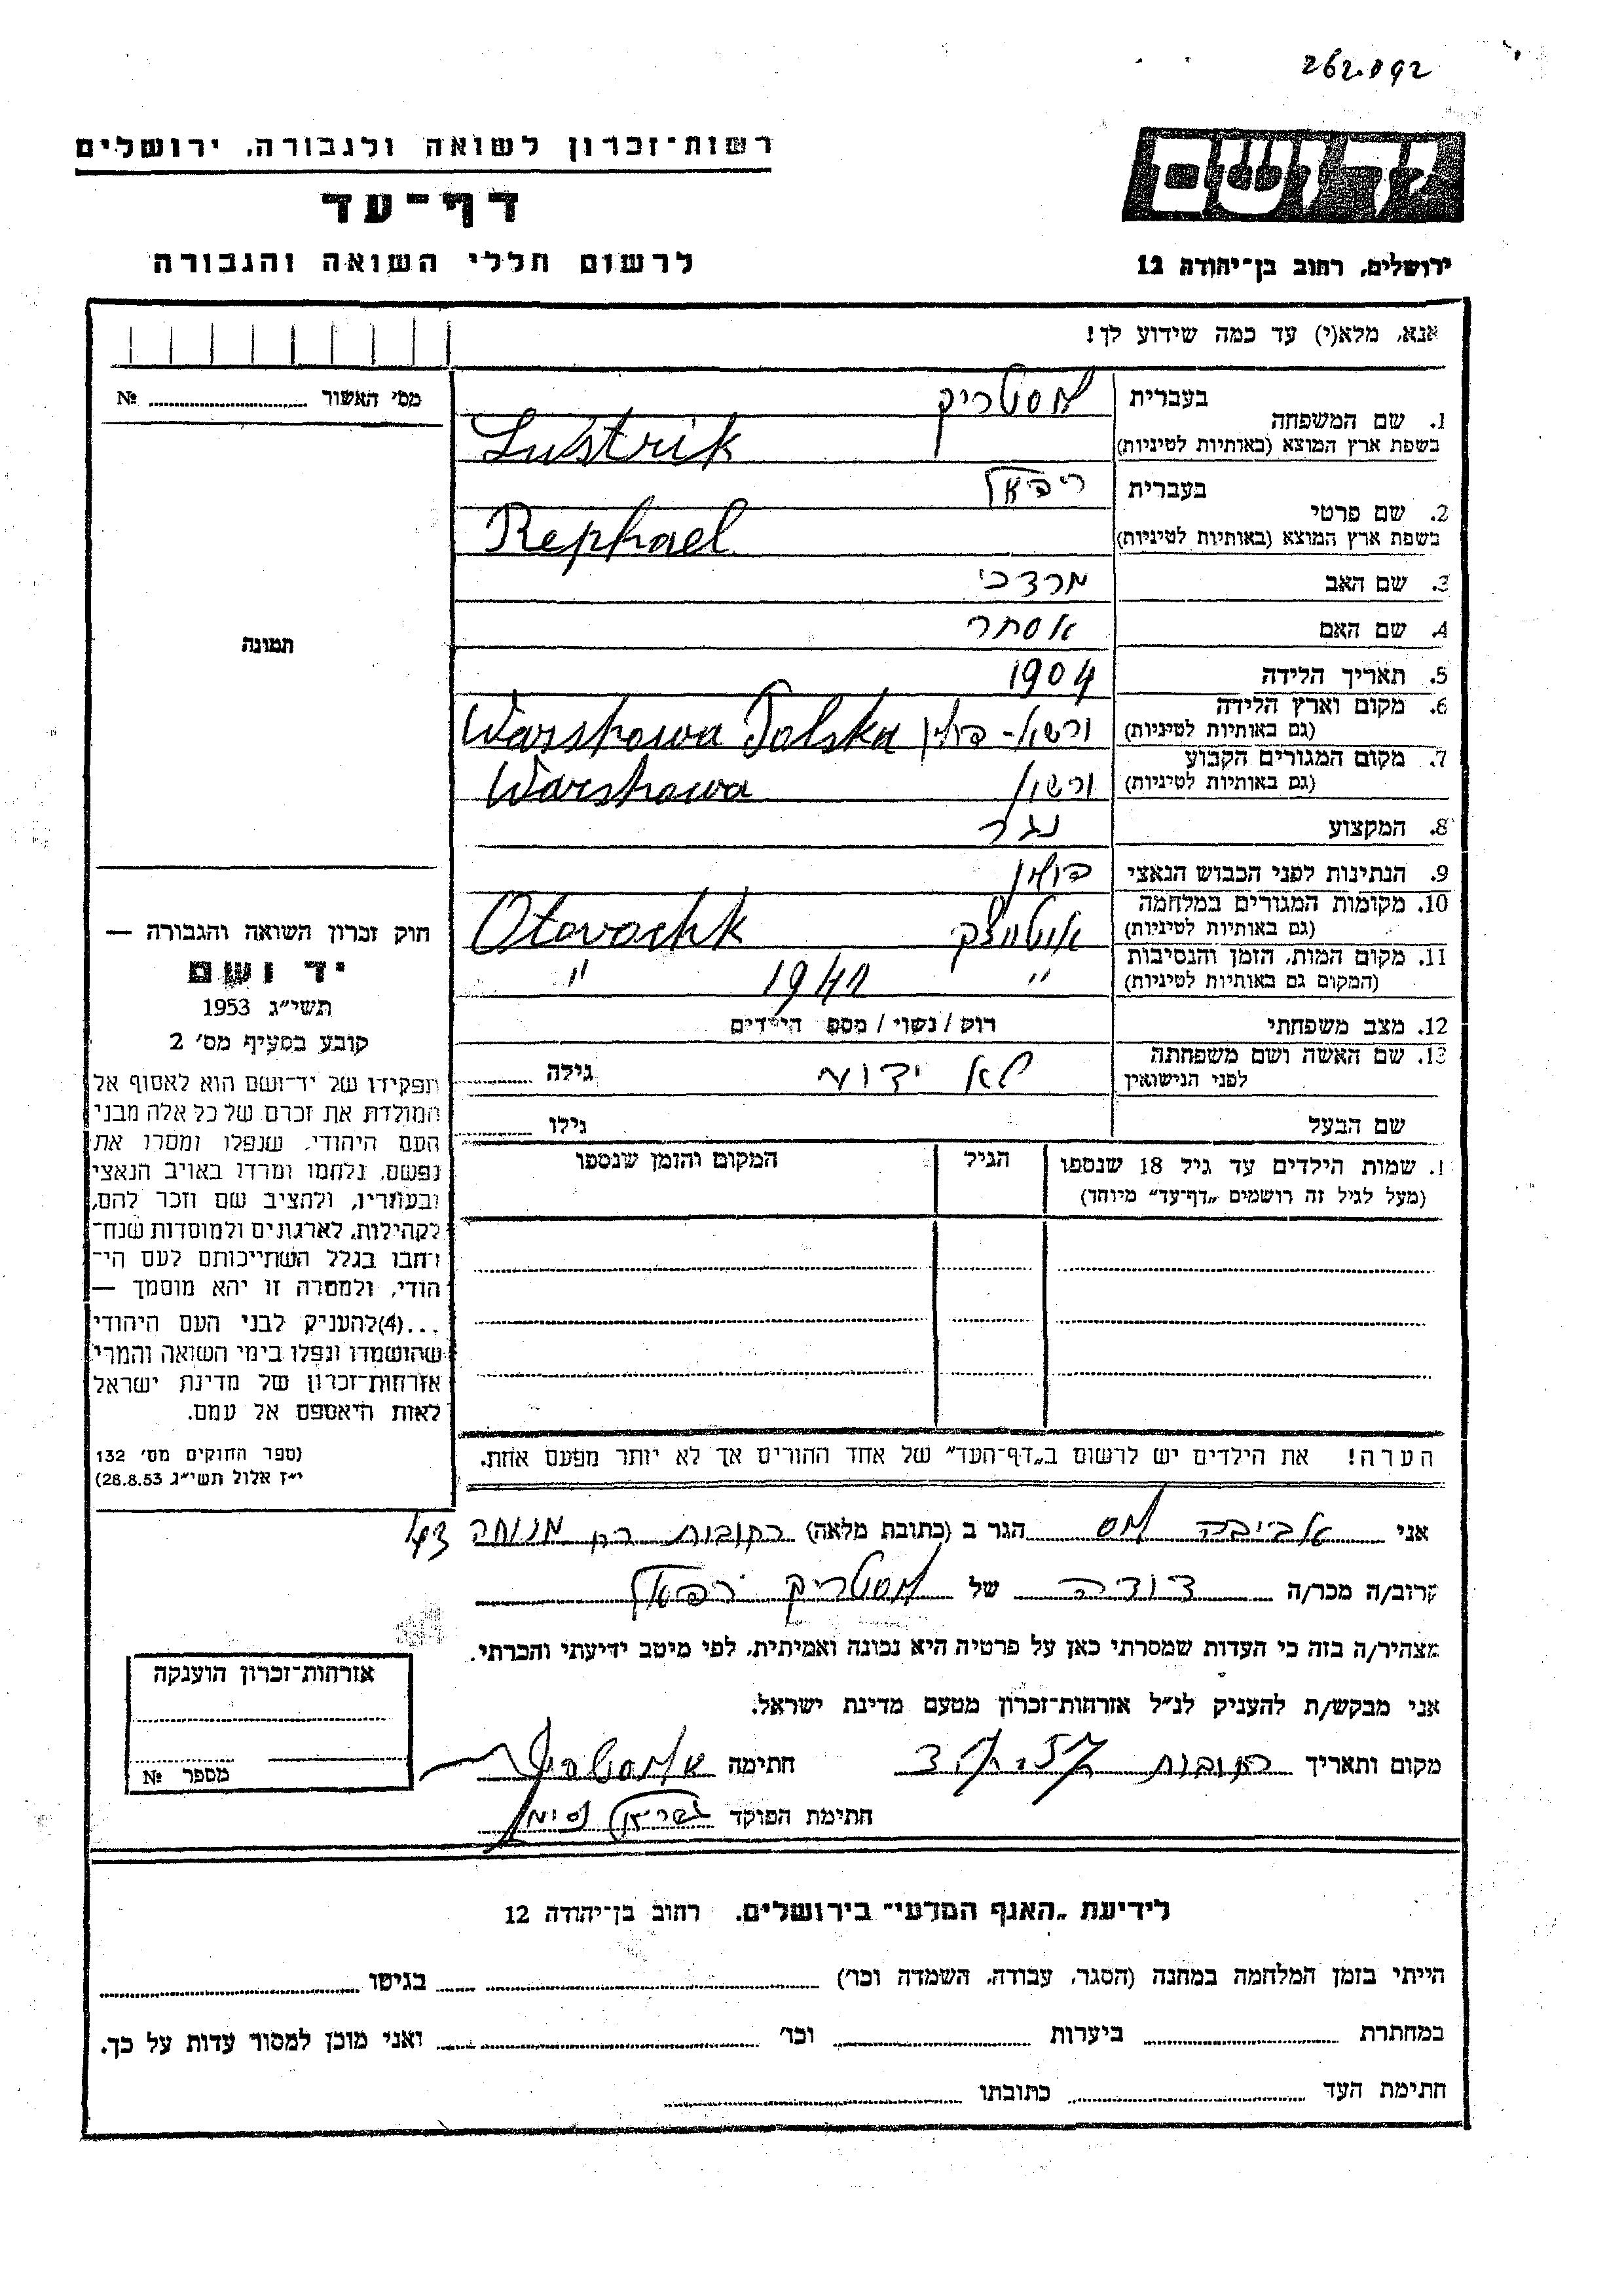 262.092
יד ושם
רשות־זכרון לשואה ולגבורה, ירושלים
דף־עד
לרשום חללי השואה והגבורה
ירושלים, רחוב בן־יהודה 12
אנא, מלא(י) עד כמה שידוע לך!
מס׳ האשור № ........
בעברית לוסטריק
1. שם המשפחה
בשפת ארץ המוצא (באותיות לטיניות) Lustrik
בעברית רפאל
2. שם פרטי
בשפת ארץ המוצא (באותיות לטיניות) Rephael
3. שם האב מרדכי
4. שם האם אסתר
5. תאריך הלידה 1904
6. מקום וארץ הלידה
(גם באותיות לטיניות) ורשא - פולין Warshawa Polska
7. מקום המגורים הקבוע
(גם באותיות לטיניות) ורשא Warshawa
8. המקצוע נגר
9. הנתינות לפני הכבוש הנאצי פולין
10. מקומות המגורים במלחמה
(גם באותיות לטיניות) אוטווצק Otovochk
11. מקום המות, הזמן והנסיבות
(המקום גם באותיות לטיניות) " 1941 "
12. מצב משפחתי רוק / נשוי / מספ הילדים
13. שם האשה ושם משפחתה
לפני הנישואין לא ידוע גילה ........
שם הבעל גילו ........
תמונה
חוק זכרון השואה והגבורה —
יד ושם
תשי״ג 1953
קובע בסעיף מס׳ 2
תפקידו של יד־ושם הוא לאסוף אל
המולדת את זכרם של כל אלה מבני
העם היהודי, שנפלו ומסרו את
נפשם, נלחמו ומרדו באויב הנאצי
ובעוזריו, ולהציב שם וזכר להם,
לקהילות, לארגונים ולמוסדות שנח־
רבו בגלל השתייכותם לעם הי־
הודי, ולמטרה זו יהא מוסמך —
...(4)להעניק לבני העם היהודי
שהושמדו ונפלו בימי השואה והמרי
אזרחות־זכרון של מדינת ישראל
לאות היאספם אל עמם.
(ספר החוקים מס׳ 132
י״ז אלול תשי״ג 28.8.53)
1. שמות הילדים עד גיל 18 שנספו הגיל המקום והזמן שנספו
(מעל לגיל זה רושמים „דף־עד״ מיוחד)
הערה! את הילדים יש לרשום ב„דף־העד״ של אחד ההורים אך לא יותר מפעם אחת.
אני אביבה לוס הגר ב (כתובת מלאה) רחובות רח מנוחה
קרוב/ה מכר/ה דודה של לוסטריק רפאל
מצהיר/ה בזה כי העדות שמסרתי כאן על פרטיה היא נכונה ואמיתית, לפי מיטב ידיעתי והכרתי.
אני מבקש/ת להעניק לנ״ל אזרחות־זכרון מטעם מדינת ישראל.
מקום ותאריך רחובות חתימה
חתימת הפוקד
אזרחות־זכרון הוענקה
מספר №
לידיעת „האגף המדעי״ בירושלים, רחוב בן־יהודה 12
הייתי בזמן המלחמה במחנה (הסגר, עבודה, השמדה וכו׳) ........ בגיטו ........
במחתרת ........ ביערות ........ וכו׳ ........ ואני מוכן למסור עדות על כך.
חתימת העד ........ כתובתו ........